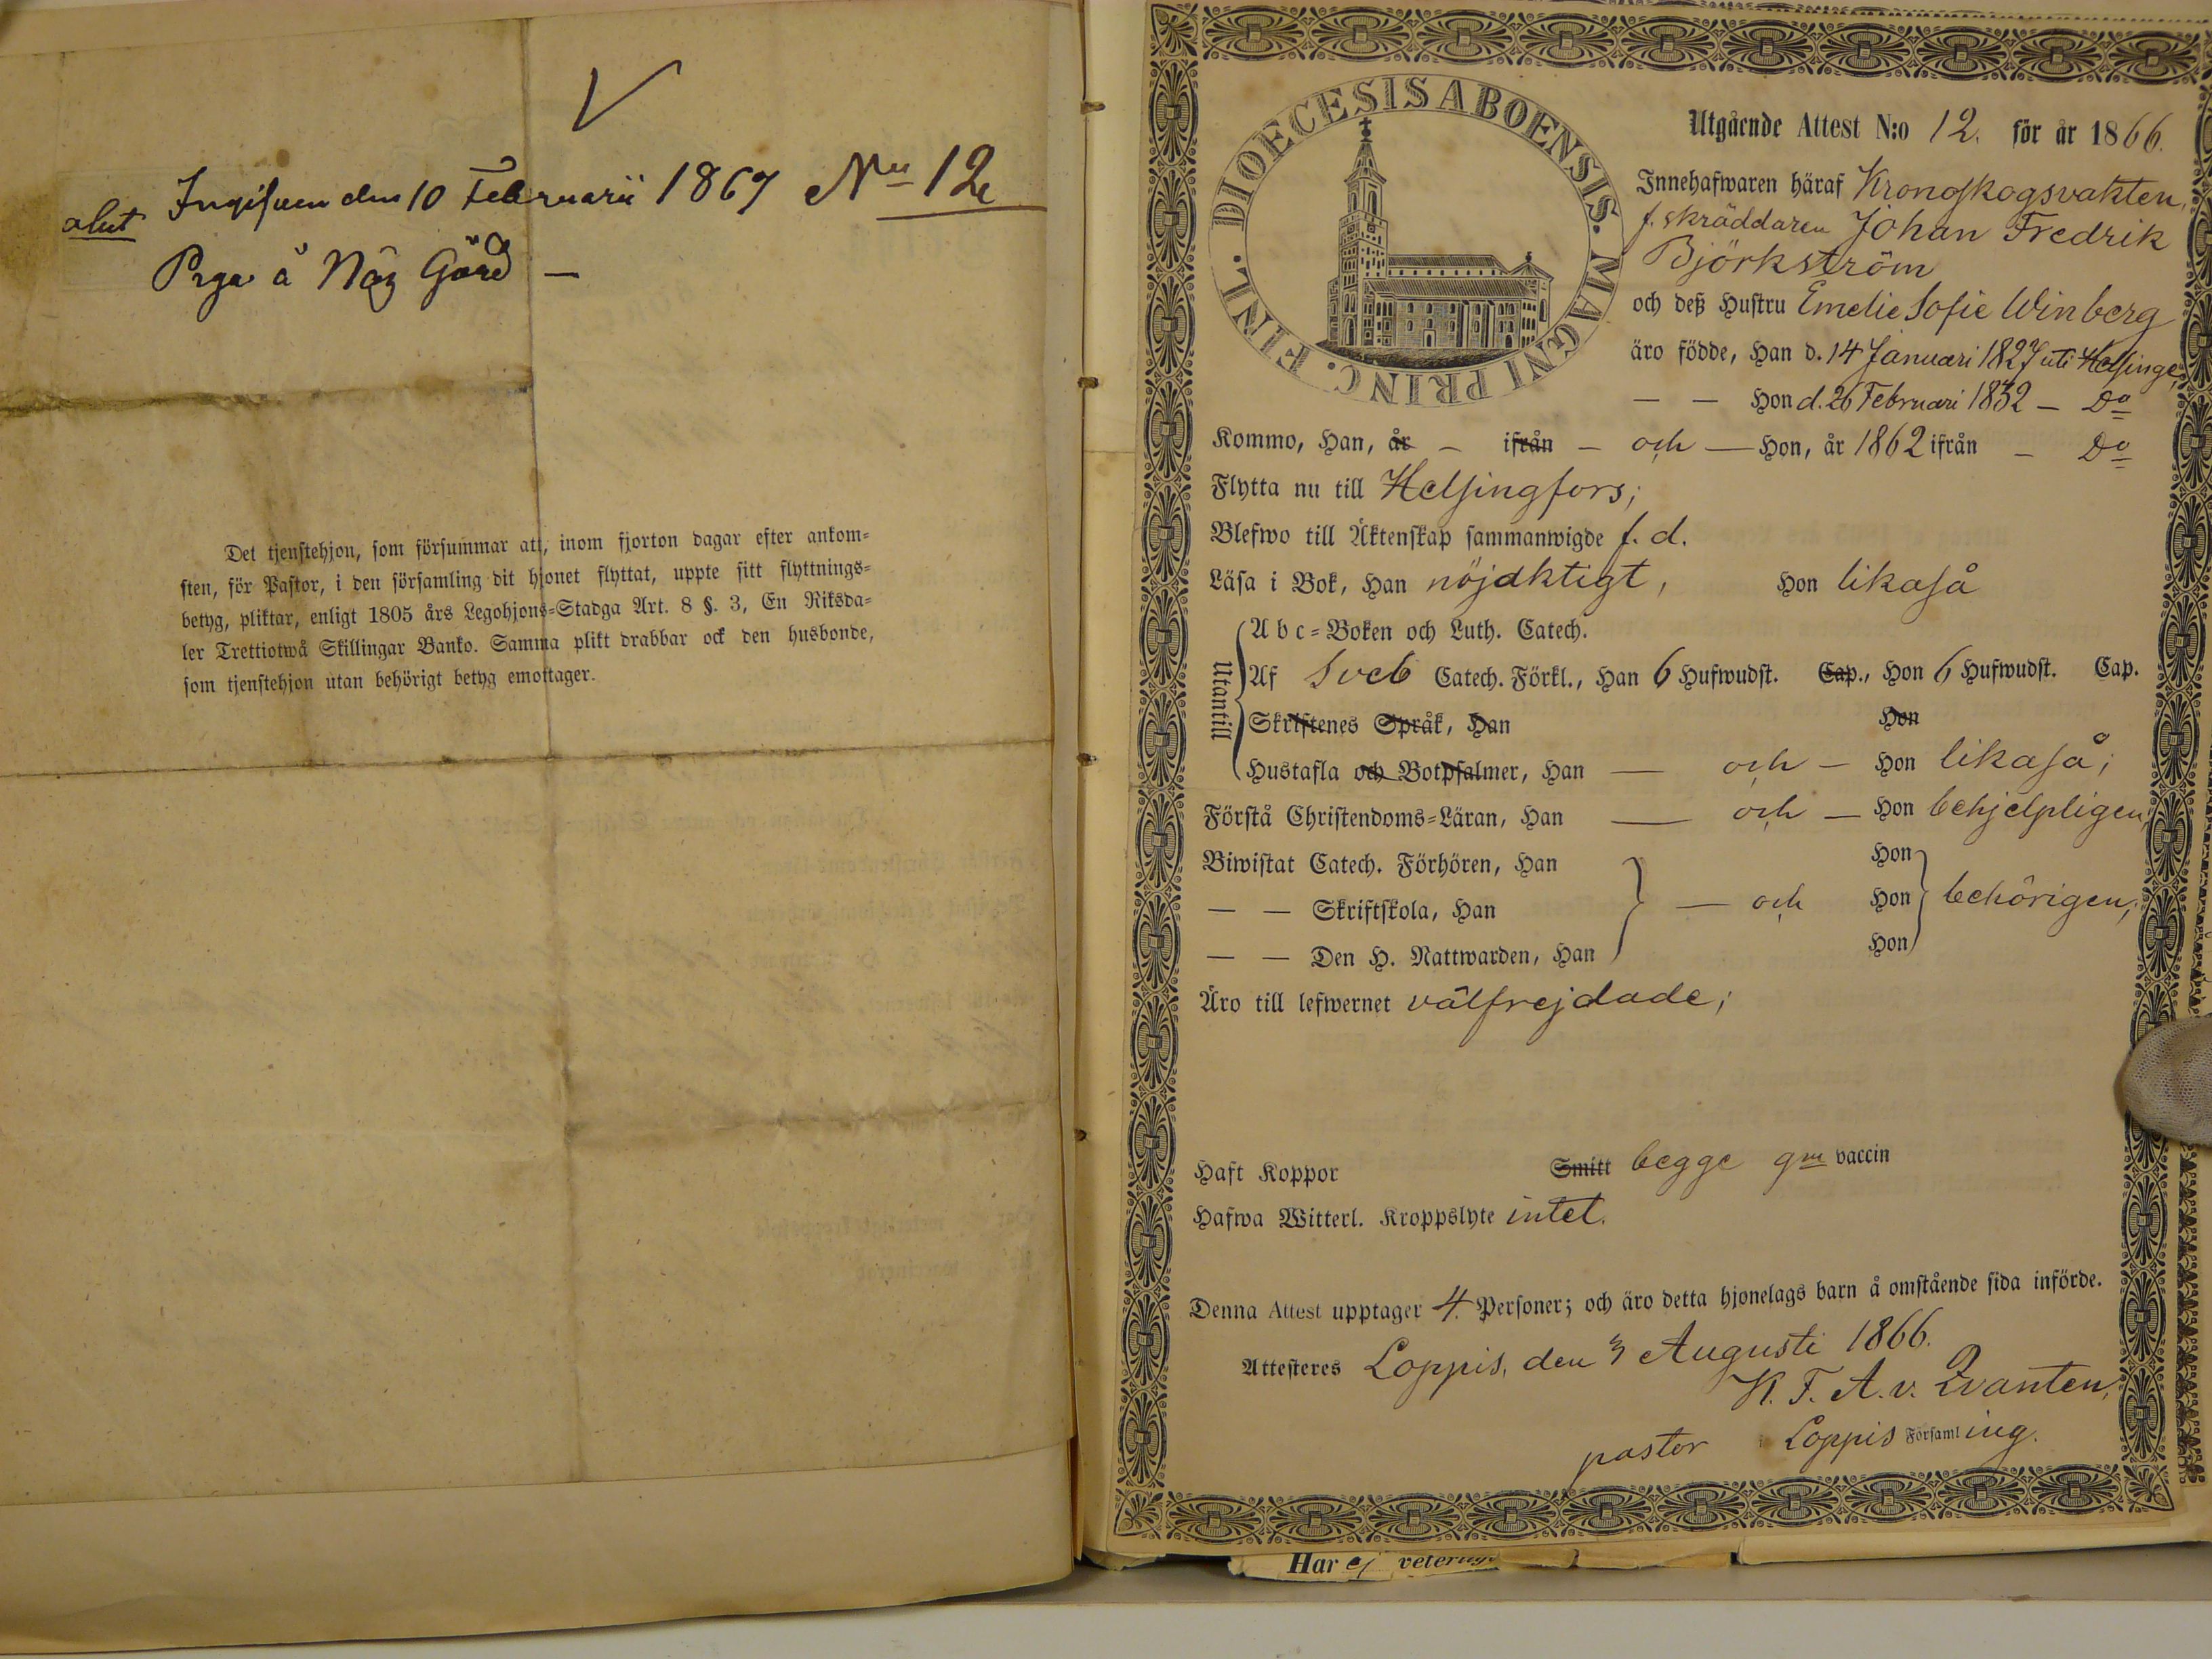 Ingifven den 10 Februarii 1867 No 12
Det tjenstehjon, som försummar att, inom fjorton dagar efter ankom-
sten, för Pastor, i den församling dit hjonet flyttat, uppte sitt flyttnings-
betyg, pliktar, enligt 1805 års Legohjons-Stadga Art. 8 §. 3, En Riksda-
ler Trettiotwå Skillingar Banko. Samma plikt drabbar ock den husbonde,
som tjenstehjon utan behörigt betyg emottager.
FINL. DIOECESIS ABOENSIS. MAGNI PRINC.
Utgående Attest N:o 12. för år 1866.
Innehafwaren häraf Kronoskogsvakten,
f. skräddaren Johan Fredrik
Björkström
och deß Hustru Emelie Sofie Winberg
äro födde, Han d. 14 Januari 1827 uti Helsinge,
— — Hon d. 26 Februari 1832 — Do
Kommo, Han, år — ifrån — och — Hon, år 1862 ifrån — Do
Flytta nu till Helsingfors;
Blefwo till Äktenskap sammanwigde f. d.
Läsa i Bok, Han nöjaktigt, Hon likaså
Utantill
A b c-Boken och Luth. Catech.
Af Sveb Catech. Förkl., Han 6 Hufwudst. Cap., Hon 6 Hufwudst. Cap.
Skriftenes Språk, Han Hon
Hustafla och Botpsalmer, Han — och — Hon likaså;
Förstå Christendoms-Läran, Han — och — Hon behjelpligen;
Biwistat Catech. Förhören, Han Hon
— — Skriftskola, Han — och Hon behörigen;
— — Den H. Nattwarden, Han Hon
Äro till lefwernet välfrejdade;
Haft Koppor Smitt begge gm vaccin
Hafwa Witterl. Kroppslyte intet.
Denna Attest upptager 4. Personer; och äro detta hjonelags barn å omstående sida införde.
Attesteres Loppis, den 3 Augusti 1866.
K. F. A. v. Qvanten,
pastor i Loppis Församling.
Har ej